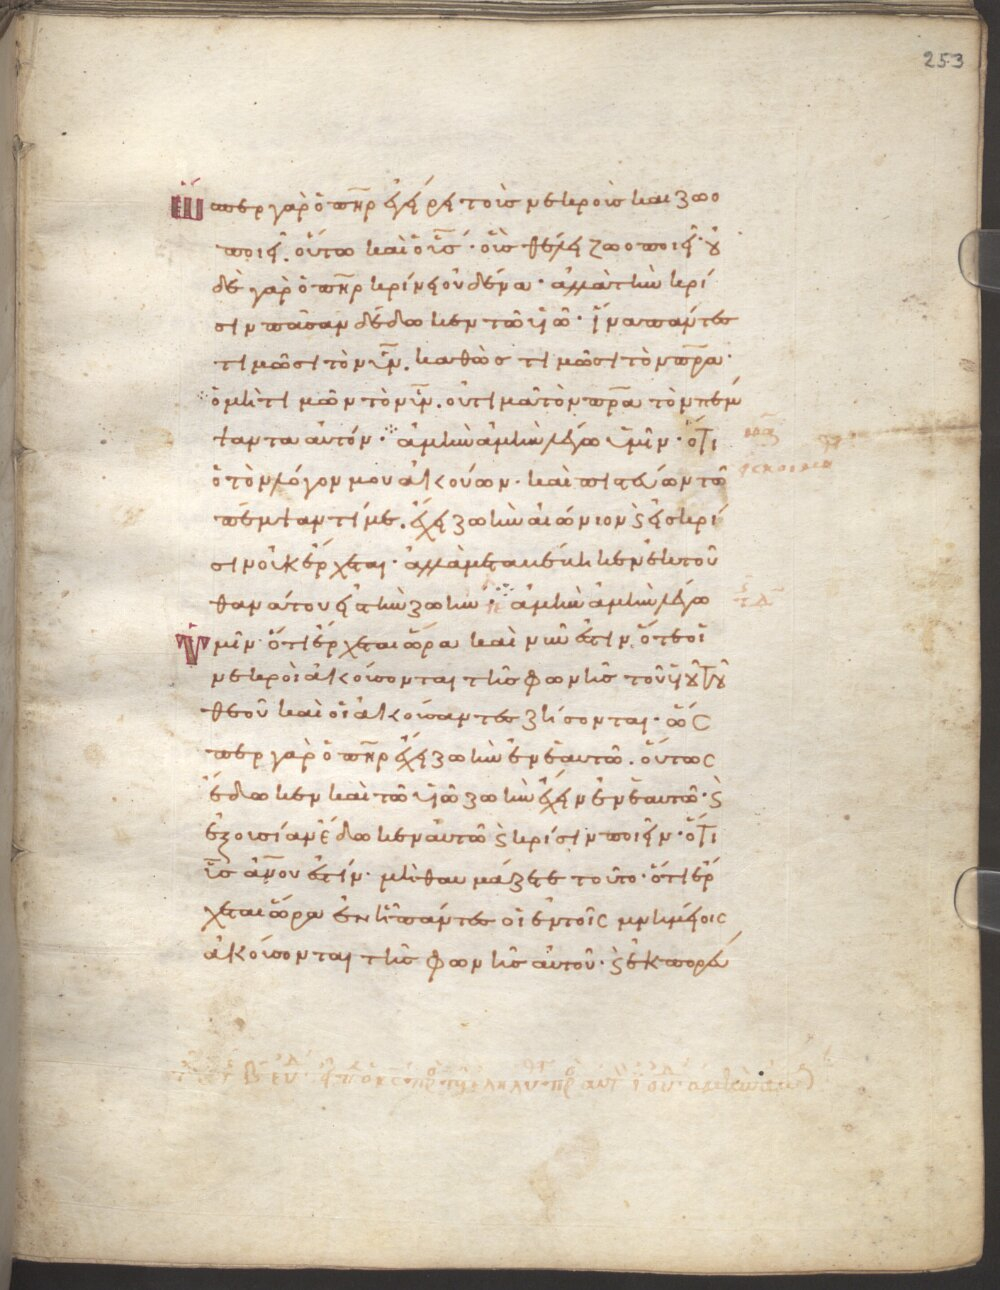 253
Ὥσπερ γὰρ ὁ πηρ ἐγείρει τοὺς νεκροὺς καὶ ζωο
ποιεῖ. οὕτω καὶ ὁ υς· οὓς θέλει ζωοποιεῖ· οὐ
δὲ γὰρ ὁ πηρ κρίνει οὐδένα· ἀλλὰ τὴν κρί
σιν πᾶσαν δέδωκεν τῶ υἱῶ· ἵνα πάντες
τιμῶσι τὸν υν. καθὼς τιμῶσι τὸν πρα·
ὁ μὴ τιμῶν τὸν υν. οὐ τιμᾶ τὸν πρα τὸν πέμ
ψαντα αὐτόν· ἀμὴν ἀμὴν λέγω ὑμῖν· ὅτι
ὁ τὸν λόγον μου ἀκούων· καὶ πιστεύων τῶ
πέμψαντί με. ἔχει ζωὴν αἰώνιον ϗ εἰς κρί
σιν οὐκ ἔρχεται· ἀλλὰ μεταβέβηκεν ἐκ τοῦ
θανάτου εἰς τὴν ζωήν· ἀμὴν ἀμὴν λέγω
ὑμῖν· ὅτι ἔρχεται ὥρα καὶ νῦν ἐστιν. ὅτε οἱ
νεκροὶ ἀκούσονται τῆς φωνῆς τοῦ υἱοῦ τοῦ
θεοῦ καὶ οἱ ἀκούσαντες ζήσονται· ὥσ
περ γὰρ ὁ πηρ ἔχει ζωὴν ἐν ἑαυτῶ. οὕτως
ἔδωκεν καὶ τῶ υἱῶ ζωὴν ἔχειν ἐν ἑαυτῶ· ϗ
ἐξουσίαν ἔδωκεν αὐτῶ ϗ κρίσιν ποιεῖν· ὅτι
υς ανου ἐστίν· μὴ θαυμάζετε τοῦτο· ὅτι ἔρ
χεται ὥρα ἐν ᾗ πάντες οἱ ἐν τοῖς μνημείοις
ἀκούσονται τῆς φωνῆς αὐτοῦ· ϗ ἐκπορεύ